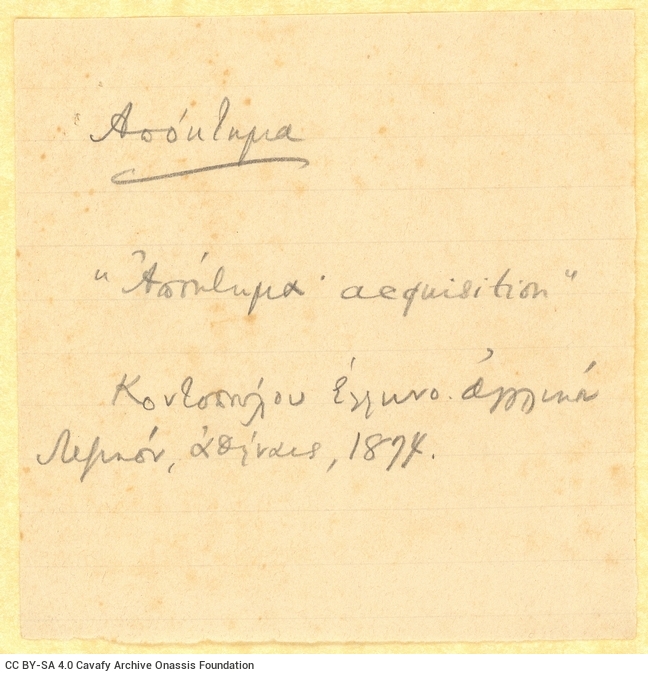 Απόκτημα
"Ἀπόκτημα· acquisition"
Κοντοπούλου Ἑλληνο-ἀγγλικόν
Λεξικόν, Ἀθήναις, 1874.
CC BY-SA 4.0 Cavafy Archive Onassis Foundation